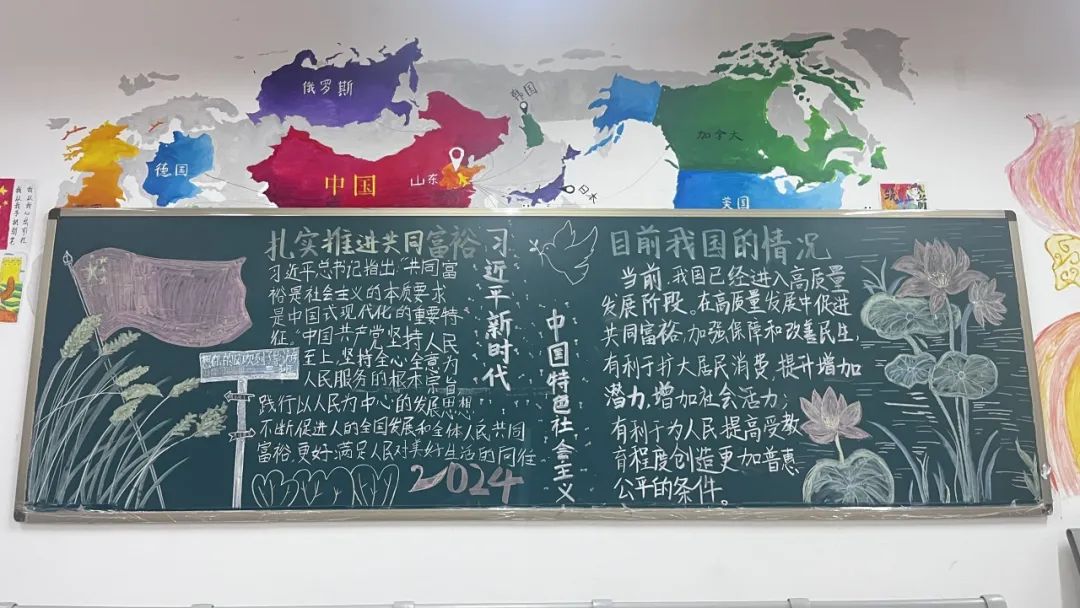 俄罗斯
韩国
德国
中国
山东
加拿大
日本
美国
扎实推进共同富裕
习近平总书记指出“共同富
裕是社会主义的本质要求
是中国式现代化的重要特
征。”中国共产党坚持人民
至上,坚持全心全意为
人民服务的根本宗旨
践行以人民为中心的发展思想
不断促进人的全国发展和全体人民共同
富裕,更好满足人民对美好生活的向往
2024
习近平新时代
中国特色社会主义
目前我国的情况
当前,我国已经进入高质量
发展阶段。在高质量发展中促进
共同富裕,加强保障和改善民生,
有利于扩大居民消费,提升增加
潜力,增加社会活力;
有利于为人民提高受教
育程度创造更加普惠
公平的条件。